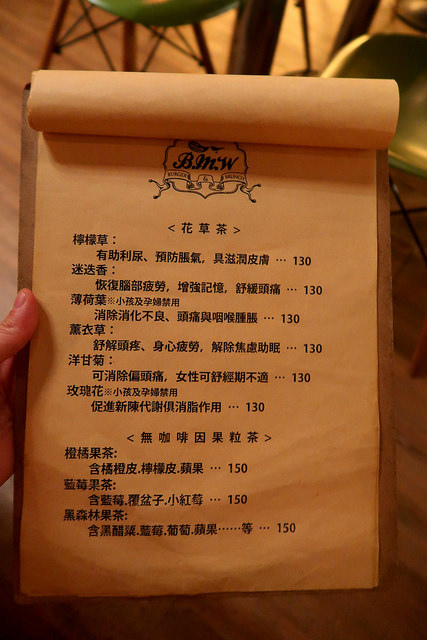 B.M.W
BURGER & BRUNCH
<花草茶>
檸檬草：
有助利尿、預防脹氣，具滋潤皮膚 … 130
迷迭香：
恢復腦部疲勞，增強記憶，舒緩頭痛 … 130
薄荷葉※小孩及孕婦禁用
消除消化不良、頭痛與咽喉腫脹 … 130
薰衣草：
舒解頭疼、身心疲勞，解除焦慮助眠 … 130
洋甘菊：
可消除偏頭痛，女性可舒經期不適 … 130
玫瑰花※小孩及孕婦禁用
促進新陳代謝俱消脂作用 … 130
<無咖啡因果粒茶>
橙橘果茶:
含橘橙皮.檸檬皮.蘋果 … 150
藍莓果茶:
含藍莓.覆盆子.小紅莓 … 150
黑森林果茶:
含黑醋粟.藍莓.葡萄.蘋果……等 … 150